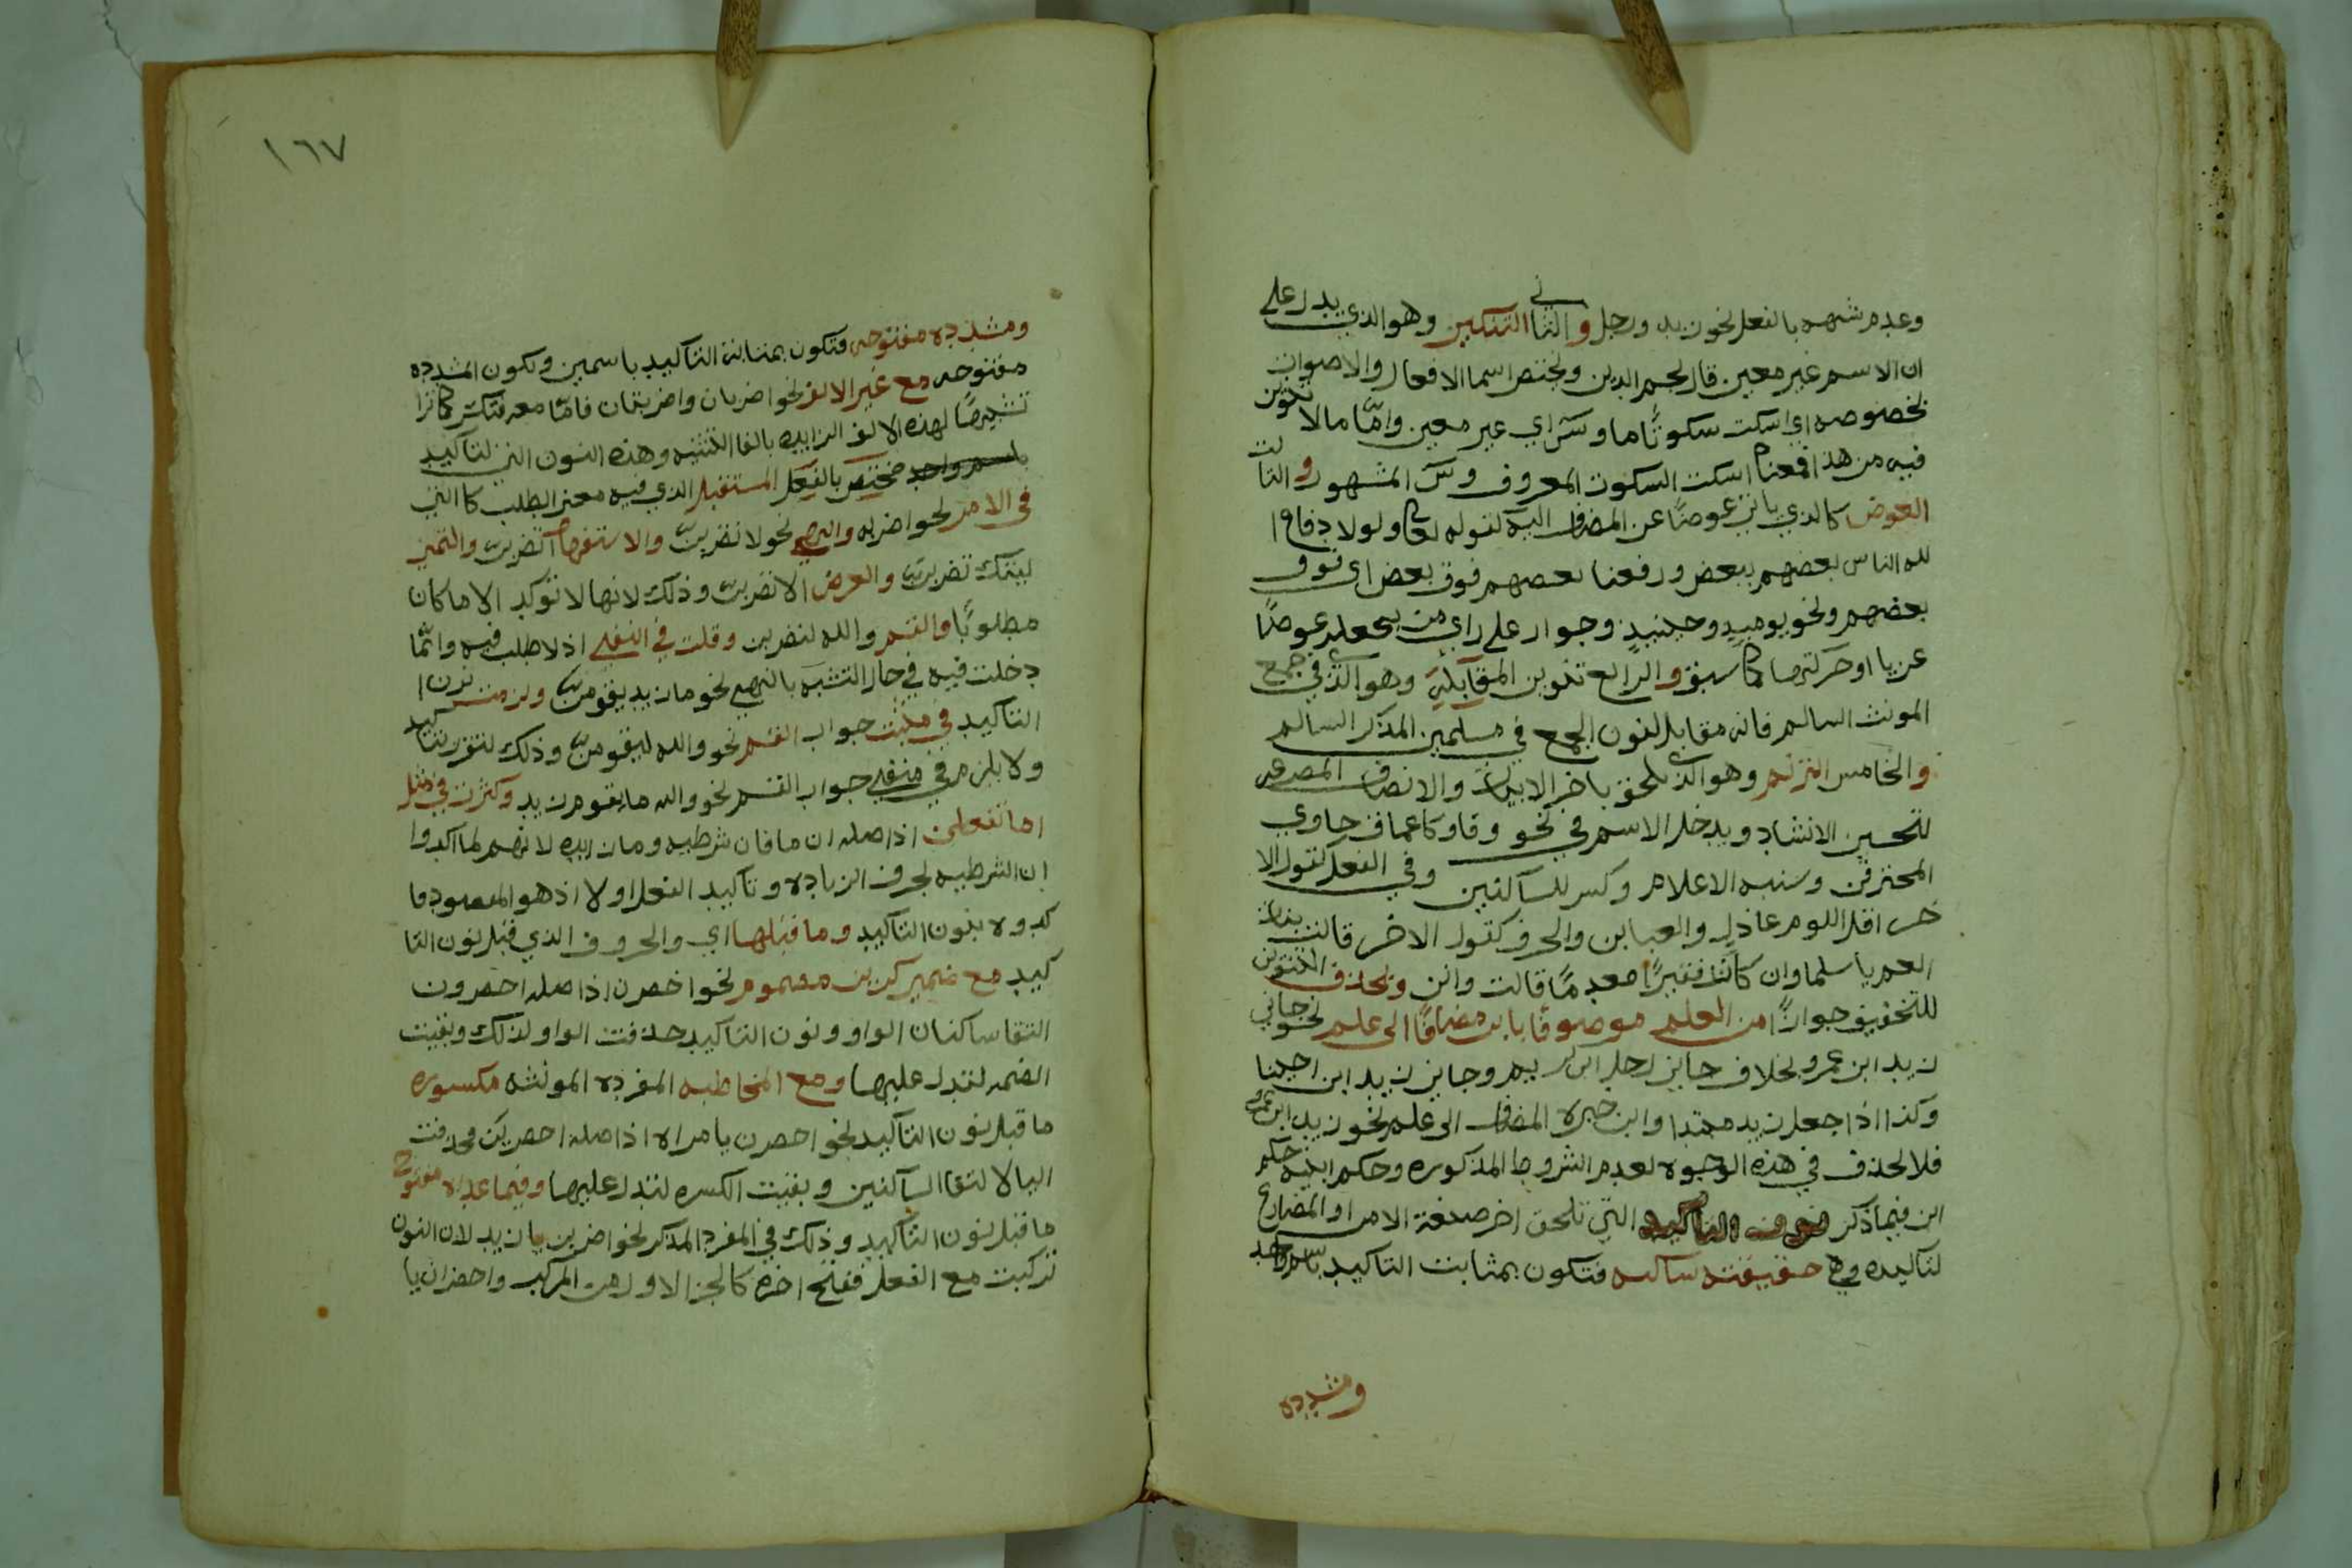 وعدم شبهه بالفعل نحو زيد ورجل والثاني التنكير وهو الذي يدل على
ان الاسم غير معين قال نجم الدين ويختص اسما الافعال والاصوات
نحو صه اي اسكت سكوتًا ما وسيبويه اي غير معين وامّا ما لا تنوين
فيه من هذا فمعناه اسكت السكوت المعروف المشهور والثالث
العوض كالذي ياتي عوضًا عن المضاف اليه كقوله تعالى ولولا دفاع ا
لله الناس بعضهم ببعض ورفعنا بعضهم فوق بعض اي فوق
بعضهم ونحو يوميذ وحينيذٍ وجوار على راي من يجعله عوضًا
عن يا او حركتها كما سبق والرابع تنوين المقابلة وهو الذي في جمع
المونث السالم فانه مقابل لنون الجمع في مسلمين المذكر السالم
والخامس الترنم وهو الذي يلحق باخر الابيات والانصاف المصرعه
لتحسين الانشاد ويدخل الاسم في نحو وقاتم الاعماق خاوي
المخترقن وشبه الاعلام وكسر للساكنين وفي الفعل كقول الا
خر اقل اللوم عاذل والعتابن والحرف كقول الاخر قالت بنات
العم يا سلما وان كان فقيرًا معدمًا قالت وانن ويحذف التنوين
للتخفيف جوازًا من العلم موصوفًا بابن مضافًا الى علم نحو جاني
زيد ابن عمرو بخلاف جاني رجل ابن كريم وجاني زيد ابن اخينا
وكذا اذا جعل زيد مبتدا وابن خبره المضاف الى علم نحو زيد ابن عمرو
فلا يحذف في هذه الوجوه لعدم الشروط المذكوره وحكم ابنه حكم
ابن فيما ذكر نون التاكيد التي تلحق اخر صيغة الامر او المضارع
لتاكيده وهي خفيفة ساكنه فتكون بمثابت التاكيد باسم واحد
ومشدده
١٦٧
ومشدده مفتوحه فتكون بمثابة التاكيد باسمين وتكون المشدده
مفتوحه مع غير الالف نحو اضربان واضربنان فامّا معه فتكسر كما ترا
تشبيهًا لهذه الالف الزايده بالف التثنيه وهذه النون التي لتاكيد
باسم واحد تختص بالفعل المستقبل الذي فيه معنى الطلب كاالتي
في الامر نحو اضربن والنهي نحو لا تضربن والاستفهام اتضربن والتمني
ليتك تضربن والعرض الا تضربن وذلك لانها لا توكد الا ما كان
مطلوبًا والقسم والله لتضربن وقلت في النفي اذ لا طلب فيه وانّما
دخلت فيه في حال التشبه بالنهي نحو ما زيد يقومن ولزمت نون ا
التاكيد في مثبت جواب القسم نحو والله ليقومن وذلك لتقرر التاكيد
ولا يلزم في منفي جواب القسم نحو والله ما يقوم زيد وكثرت في مثل
اما تفعلن اذ اصله ان ما فان شرطيه وما زايده لانهم لما اكدوا
ان الشرطيه بحرف الزياده وتاكيد الفعل اولا اذ هو المقصود فا
كدوه بنون التاكيد وما قبلها اي والحروف الذي قبل نون التا
كيد مع ضمير كرين مضموم نحو اخصرن اذ اصله اخصرون
التقا ساكنان الواو ونون التاكيد حذفت الواو لذلك وبقيت
الضمه لتدل عليها ومع المخاطبه المفرده المونثه مكسوره
ما قبل نون التاكيد نحو احصرن يا مراه اذ اصله احصرين فحذفت
اليا لالتقا الساكنين وبقيت الكسره لتدل عليها وفيما عداه مفتوح
ما قبل نون التاكيد وذلك في المفرد المذكر نحو اضربن يا زيد لان النون
تركبت مع الفعل ففتح اخره كالجز الاول من المركب واحضران يا